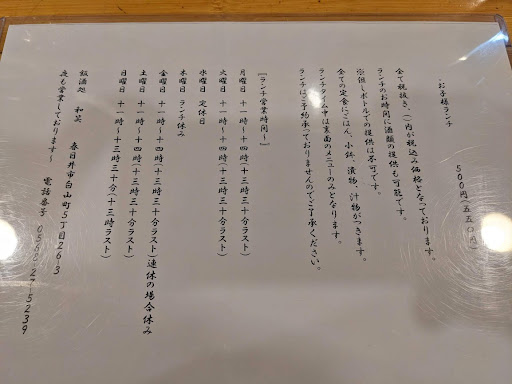 ・お子様ランチ　500円(五五〇円)
全て税抜き、( )内が税込み価格となっております。
ランチのお時間に酒類の提供も可能です。
※但しボトルでの提供は不可です。
全ての定食にごはん、小鉢、漬物、汁物がつきます。
ランチタイム中は裏面のメニューのみとなります。
ランチはご予約承っておりませんのでご了承ください。
[ランチ営業時間～]
月曜日　十一時～十四時(十三時三十分ラスト)
火曜日　十一時～十四時(十三時三十分ラスト)
水曜日　定休日
木曜日　ランチ休み
金曜日　十一時～十四時(十三時三十分ラスト)
土曜日　十一時～十四時(十三時三十分ラスト)連休の場合休み
日曜日　十一時～十三時三十分(十三時ラスト)
飯酒処　和笑　春日井市白山町5丁目26-3
夜も営業しております～　電話番号 0568-27-5239